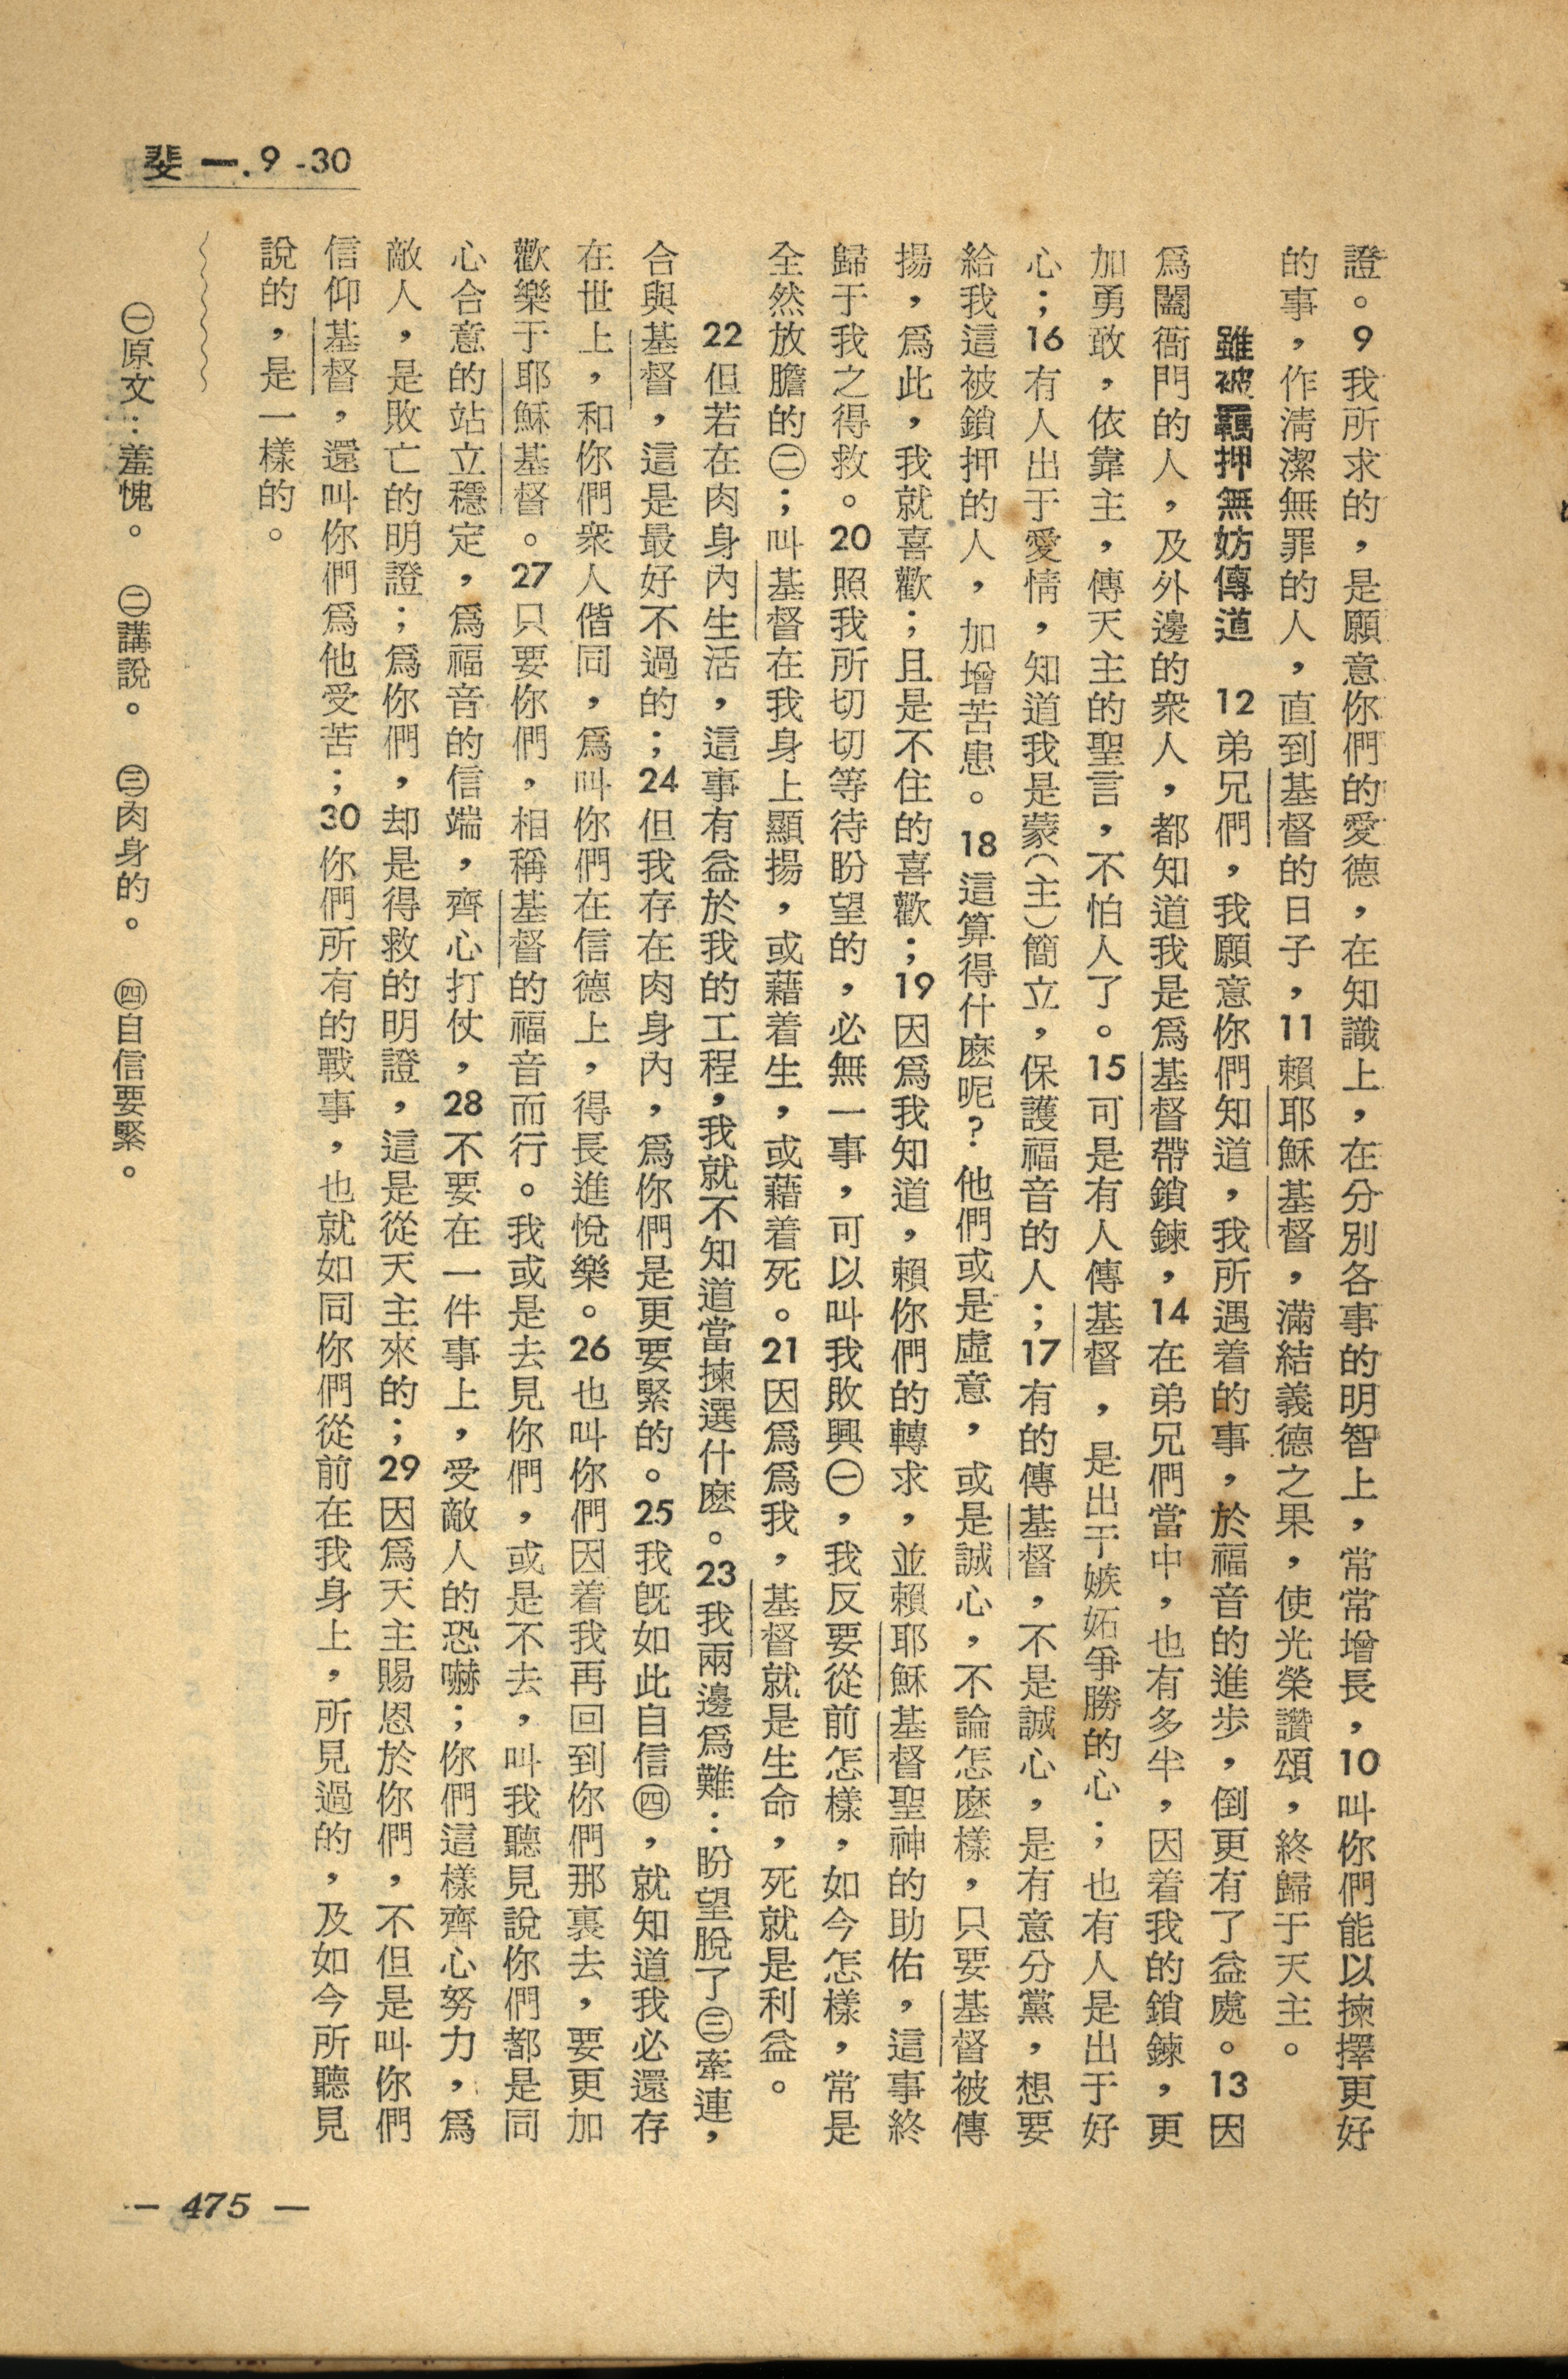 斐一.9-30
證。9我所求的，是願意你們的愛德，在知識上，在分別各事的明智上，常常增長，10叫你們能以揀擇更好
的事，作淸潔無罪的人，直到基督的日子，11賴耶穌基督，滿結義德之果，使光榮讚頌，終歸于天主。
雖被羈押無妨傳道　12弟兄們，我願意你們知道，我所遇着的事，於福音的進步，倒更有了益處。13因
爲闔衙門的人，及外邊的衆人，都知道我是爲基督帶鎖鍊，14在弟兄們當中，也有多半，因着我的鎖鍊，更
加勇敢，依靠主，傳天主的聖言，不怕人了。15可是有人傳基督，是出于嫉妬爭勝的心；也有人是出于好
心；16有人出于愛情，知道我是蒙(主)簡立，保護福音的人；17有的傳基督，不是誠心，是有意分黨，想要
給我這被鎖押的人，加增苦患。18這算得什麽呢？他們或是虛意，或是誠心，不論怎麽樣，只要基督被傳
揚，爲此，我就喜歡；且是不住的喜歡；19因爲我知道，賴你們的轉求，並賴耶穌基督聖神的助佑，這事終
歸于我之得救。20照我所切切等待盼望的，必無一事，可以叫我敗興㊀，我反要從前怎樣，如今怎樣，常是
全然放膽的㊁；叫基督在我身上顯揚，或藉着生，或藉着死。21因爲爲我，基督就是生命，死就是利益。
22但若在肉身內生活，這事有益於我的工程，我就不知道當揀選什麽。23我兩邊爲難：盼望脫了㊂牽連，
合與基督，這是最好不過的；24但我存在肉身內，爲你們是更要緊的。25我旣如此自信㊃，就知道我必還存
在世上，和你們衆人偕同，爲叫你們在信德上，得長進悅樂。26也叫你們因着我再回到你們那裏去，要更加
歡樂于耶穌基督。27只要你們，相稱基督的福音而行。我或是去見你們，或是不去，叫我聽見說你們都是同
心合意的站立穩定，爲福音的信端，齊心打仗，28不要在一件事上，受敵人的恐嚇；你們這樣齊心努力，爲
敵人，是敗亡的明證；爲你們，却是得救的明證，這是從天主來的；29因爲天主賜恩於你們，不但是叫你們
信仰基督，還叫你們爲他受苦；30你們所有的戰事，也就如同你們從前在我身上，所見過的，及如今所聽見
說的，是一樣的。
㊀原文：羞愧。　㊁講說。　㊂肉身的。　㊃自信要緊。
— 475 —